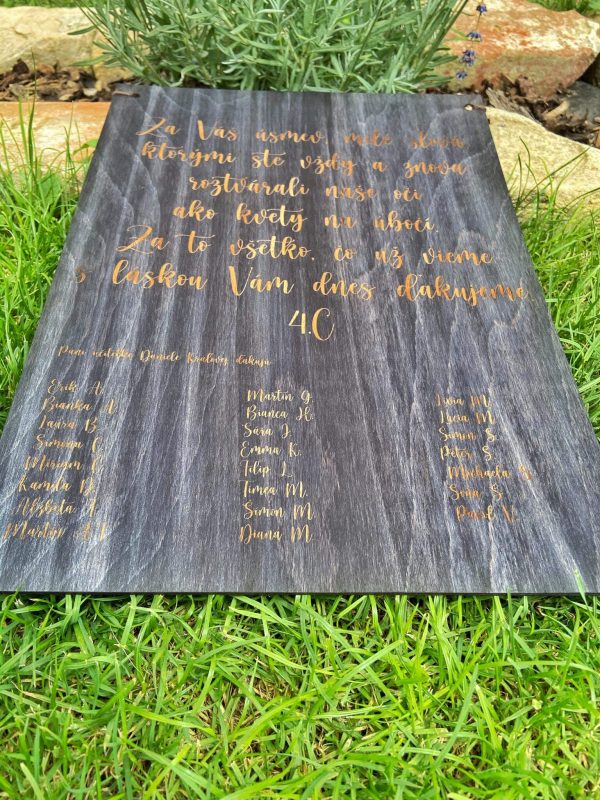 Za Váš úsmev, milé slová
ktorými ste vždy a znova
roztvárali naše oči
ako kvety na úbočí.
Za to všetko, čo už vieme
s láskou Vám dnes ďakujeme.
4.C
Pani učiteľke Daniele Kráľovej ďakujú
Erik A.
Bianka A.
Laura B.
Simona C.
Miriam Č.
Kamila D.
Alžbeta F.
Martin
Martin G.
Bianca H.
Sára J.
Emma K.
Filip L.
Timea M.
Simon M.
Diana M.
Lívia M.
Lucia M.
Simon S.
Peter S.
Michaela S.
Soňa S.
Dávid V.